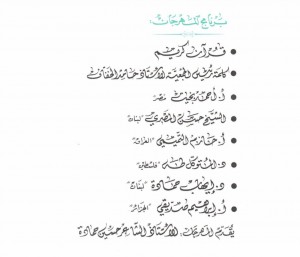 برنامج المهرجان:
• قرآن كريم
• كلمة رئيس الجمعية الأستاذ حامد الخفاف
• أ. أحمد بخيت "مصر"
• الشيخ حسن المصري "لبنان"
• أ. حازم التميمي "العراق"
• د. المتوكل طه "فلسطين"
• د. إيهاب حمادة "لبنان"
• أ. إبراهيم صديقي "الجزائر"
يقدم المهرجان: الأستاذ الشاعر حسين حمادة